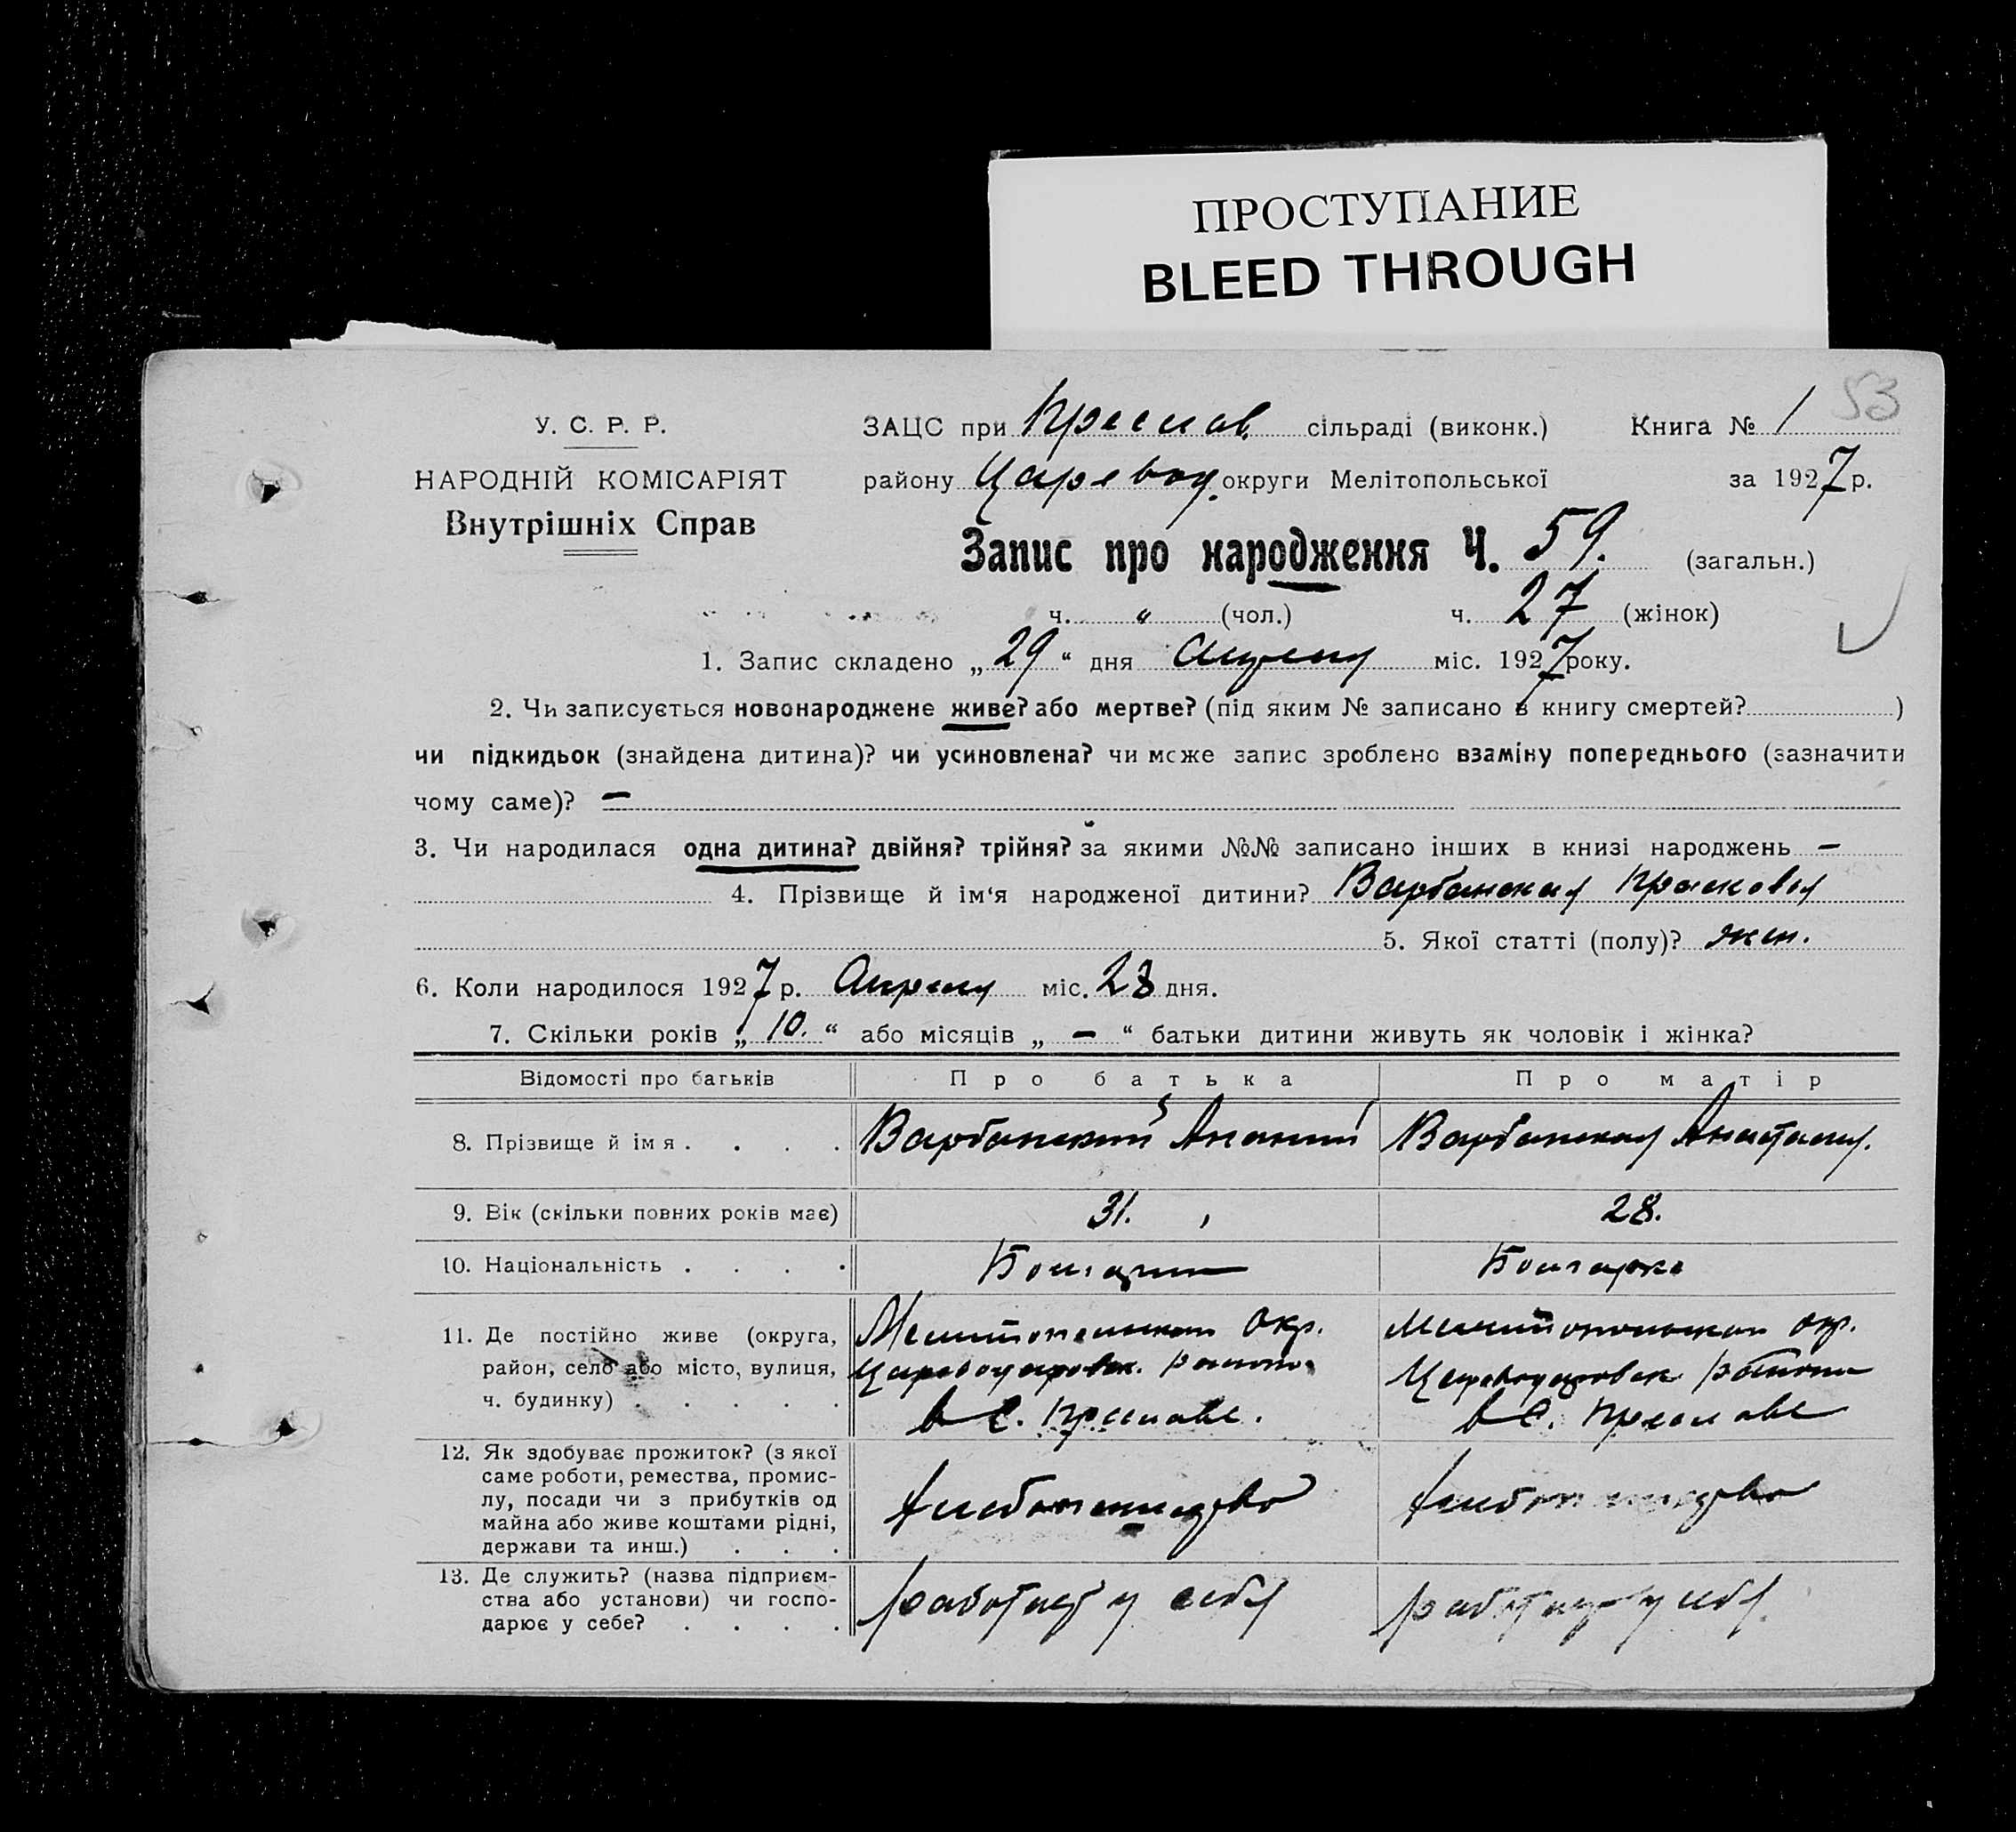 ПРОСТУПАНИЕ
BLEED THROUGH
53
У. С. Р. Р.
НАРОДНІЙ КОМІСАРІЯТ
Внутрішніх Справ
ЗАЦС при Преслав. сільраді (виконк.) Книга № 1
району Царевод. округи Мелітопольської за 1927 р.
Запис про народження Ч. 59. (загальн.)
ч. „ (чол.) ч. 27 (жінок)
1. Запис складено „ 29 “ дня Апреля міс. 1927 року.
2. Чи записується новонароджене живе? або мертве? (під яким № записано в книгу смертей? )
чи підкидьок (знайдена дитина)? чи усиновлена? чи може запис зроблено взаміну попереднього (зазначити
чому саме)? —
3. Чи народилася одна дитина? двійня? трійня? за якими №№ записано інших в книзі народжень —
4. Прізвище й ім‘я народженої дитини? Варбанская Прасковия
5. Якої статті (полу)? жен.
6. Коли народилося 1927 р. Апреля міс. 28 дня.
7. Скільки років „ 10. “ або місяців „ — “ батьки дитини живуть як чоловік і жінка?
Відомості про батьків Про батька Про матір
8. Прізвище й імя . . . . Варбанский Ананий Варбанская Анастасия.
9. Вік (скільки повних років має) 31. 28.
10. Національність . . . . Болгарин Болгарка
11. Де постійно живе (округа, Мелитопольской Окр. Мелитопольской окр.
район, село або місто, вулиця, Цареводаровск. района Цареводаровск района
ч. будинку) . . . . . в С. Преславе. в С. Преславе
12. Як здобуває прожиток? (з якої
саме роботи, ремества, промис-
лу, посади чи з прибутків од хлебопашество хлебопашество
майна або живе коштами рідні,
держави та инш.) . . .
13. Де служить? (назва підприєм-
ства або установи) чи госпо- работает у себя работает у себя
дарює у себе? . . . .